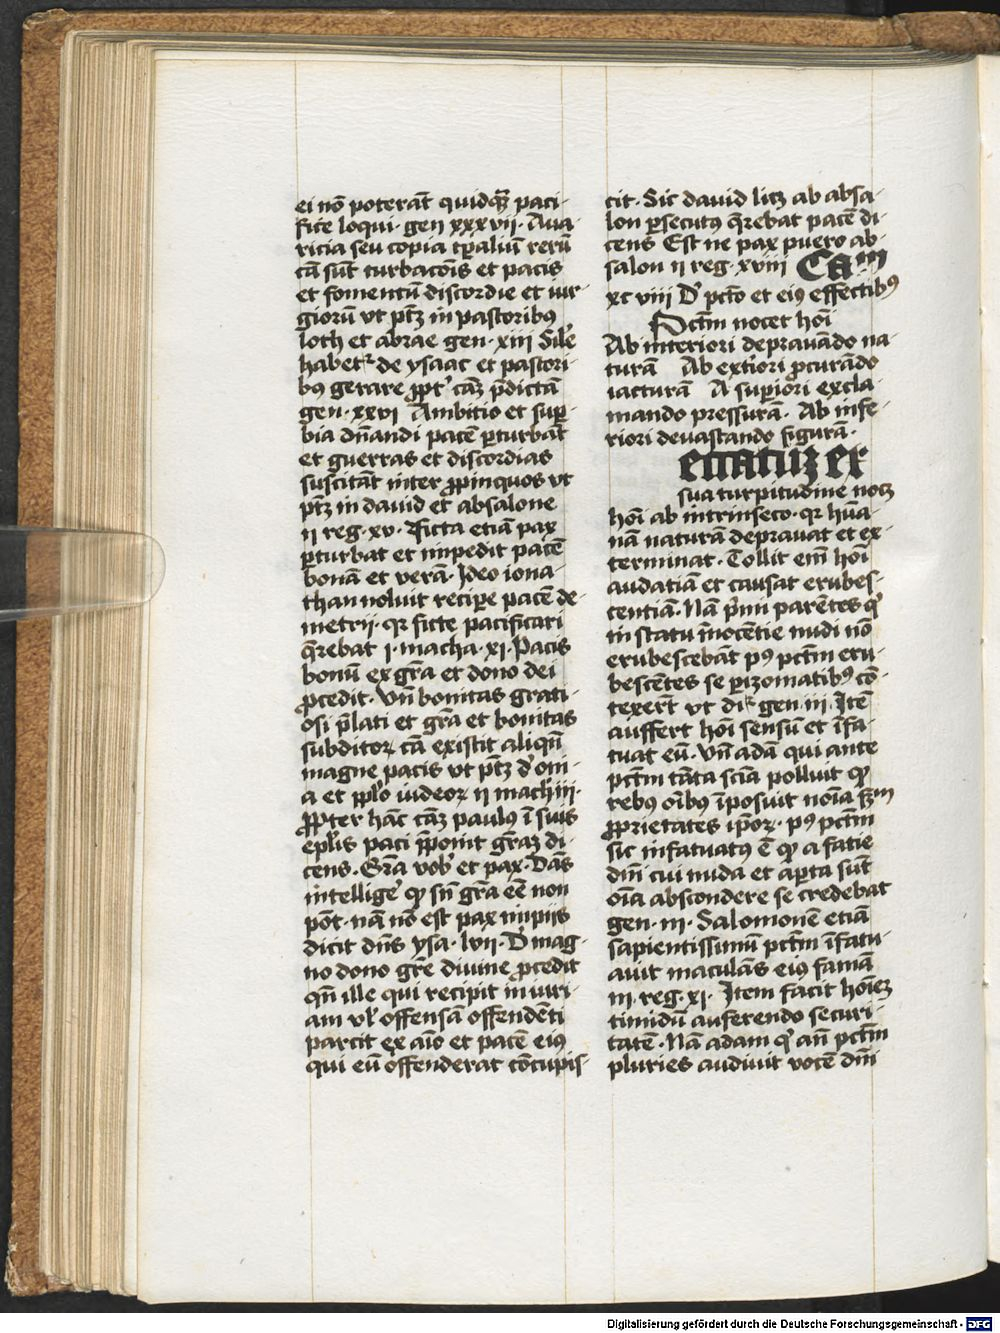 ei nō poterāt quidq̄ꝫ paci-
fice loqui· gen xxxvii· Aua-
ricia seu copia tp̄aliū rerū
cā sūt turbacōis et pacis
et fomentū discordie et iur-
giorū vt ptꝫ in pastoribus
loth et abrae gen· xiii Sil'e
habetr de ysaac et pastori-
bꝰ gerare ꝓpt' cāꝫ p̄dictā
gen· xxvi Ambitio et sup̱-
bia dn̄andi pacē ꝑturbāt
et guerras et discordias
suscitāt inter ꝓpinquos vt
ptꝫ in dauid et absalone
ii reg· xv· Ficta etiā pax
ꝑturbat et impedit pacē
bonā et verā· Ideo iona-
than noluit recipe pacē de-
metrii· qr ficte pacificari
q̄rebat i· macha· xi· Pacis
bonū ex gr̄a et dono dei
ꝓcedit· Vn̄ bonitas grati-
osi p̄lati et gr̄a et bonitas
subditoꝝ cā existit aliqn̄
magne pacis vt ptꝫ d' om-
a et pp̄lo iudeoꝝ ii mach' iii·
Ꝓpter hāc cāꝫ paulꝰ ī suis
ep̄lis paci p̄ponit gr̄aꝫ di-
cens· Gr̄a vob' et pax· Dās
intellige' qꝫ sn̄ gr̄a eē non
pōt· nā nō est pax impiis
dicit dn̄s ysa· lvii· D' mag-
no dono gr̄e diuine ꝓcedit
qn̄ ille qui recipit iniuri-
am vl' offensā offendēti
parcit ex aīo et pacē eiꝰ
qui eū offenderat cōcupis-
cit· Sic dauid licꝫ ab absa-
lon ꝑsecutꝰ q̄rebat pacē di-
cens Est ne pax puero ab-
salon ii reg· xviii Cam
xc viii D' pctō et eiꝰ effectibꝰ
Pctm̄ nocet hoī
Ab interiori deprauādo na-
turā Ab ext'iori ꝓcurādo
iacturā A supiori excla-
mando pressurā· Ab infe-
riori deuastando figurā·
eccatuꝫ ex
sua turpitudine nocꝫ
hoī ab intrinseco· qr hūa-
nā naturā deprauat et ex-
terminat· Tollit em̄ hoī
audatiā et causat erubes-
centiā· Nā p'mi parētes q'
in statu īnocētie nudi nō
erubescebāt pꝰ pctm̄ eru-
bescētes se ꝑizomatibꝰ cō-
texerūt vt dr gen· iii· Itē
auffert hoī sensū et īfa-
tuat eū· Vn̄ adā qui ante
pctm̄ tāta sciā polluit qꝫ
rebꝰ oībꝰ īposuit noīa sm̄
ꝓprietates ip̄oꝝ· pꝰ pctm̄
sic infatuatꝰ ē qꝫ a facie
dn̄i cui nuda et ap̱ta sūt
oīa abscondere se credebat
gen· iii· Salomonē etiā
sapientissimū pctm̄ īfatu-
auit maculās eiꝰ famā
iii reg· xi· Item facit hoīeꝫ
timidū auferendo securi-
tatē· Nā adam q' an̄ pctm̄
pluries audiuit vocē dn̄i
Digitalisierung gefördert durch die Deutsche Forschungsgemeinschaft - DFG